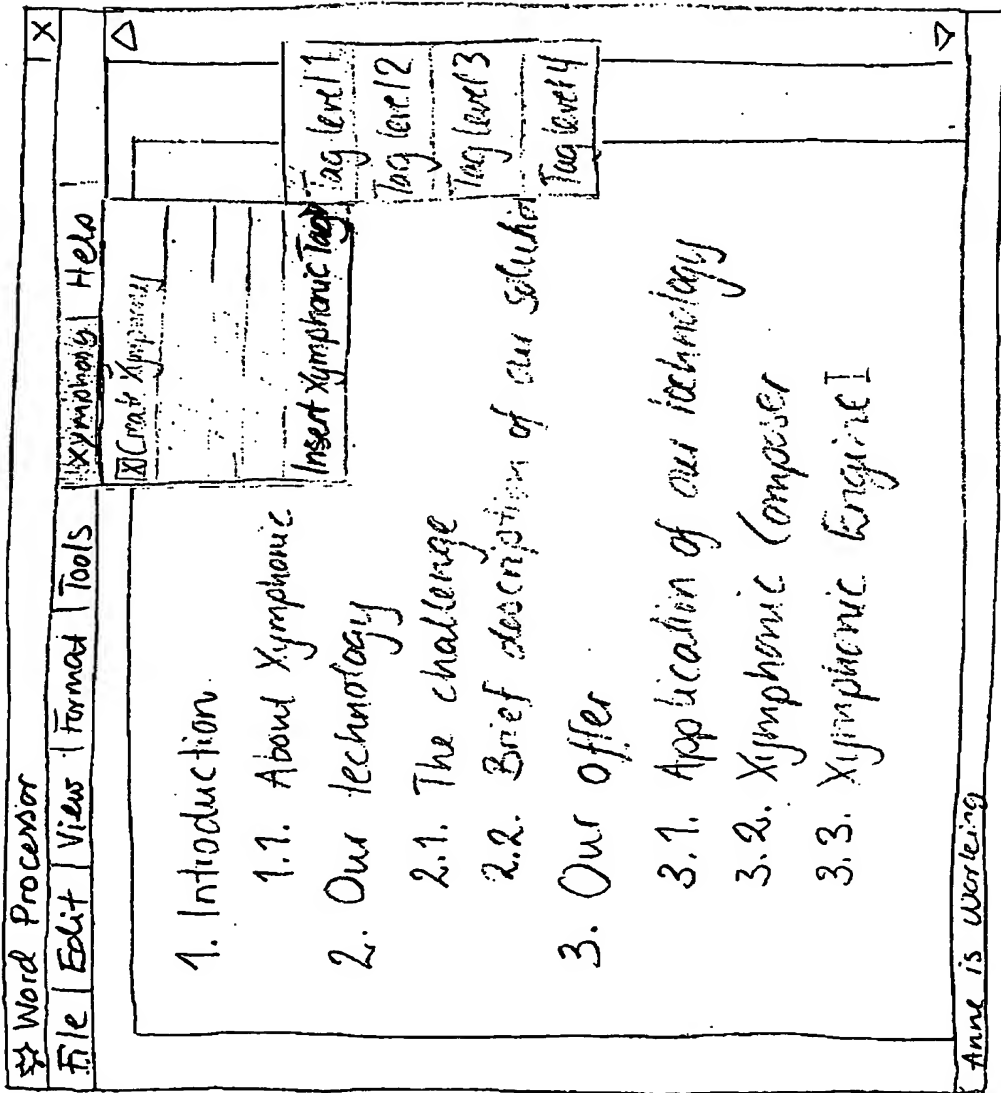 Word Processor X
File | Edit | View | Format | Tools | Xymphony | Help
Creat Xymphony
Insert Xymphonic Tag
Tag level 1
Tag level 2
Tag level 3
Tag level 4
1. Introduction
1.1. About Xymphonic
2. Our technology
2.1. The challenge
2.2. Brief description of our solution
3. Our offer
3.1. Application of our technology
3.2. Xymphonic Composer
3.3. Xymphonic Engine
Anne is working